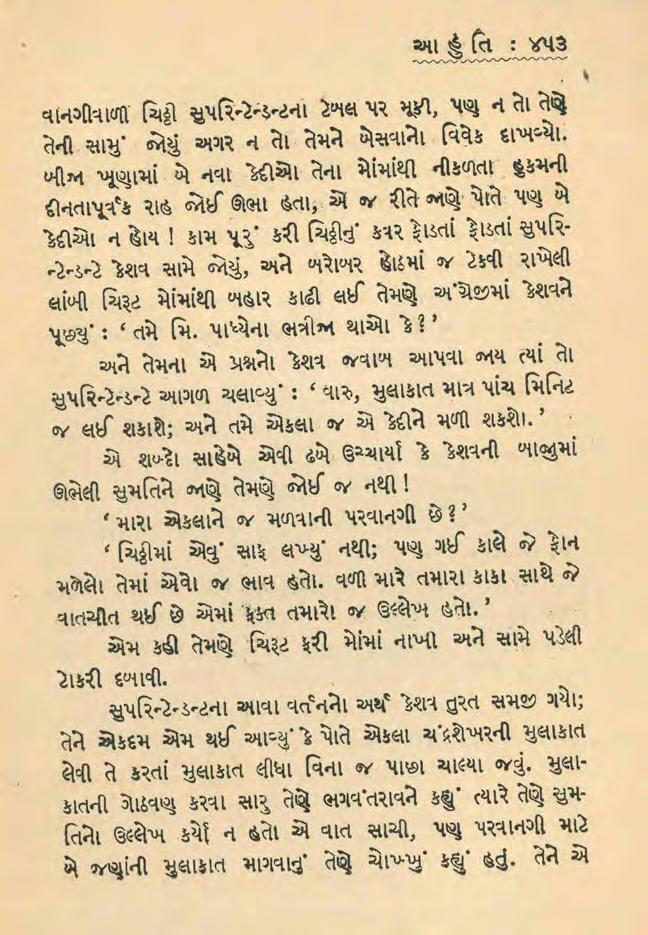 આ હુ તિ : ૪૫૩
વાનગીવાળી ચિઠ્ઠી સુપરિન્ટેન્ડન્ટના ટેબલ પર મૂકી, પણ ન તો તેણે
તેની સામું જોયું અગર ન તો તેમને બેસવાનો વિવેક દાખવ્યો.
બીજા ખૂણામાં બે નવા કેદીઓ તેના મોંમાંથી નીકળતા હુકમની
દીનતાપૂર્વક રાહ જોઈ ઊભા હતા, એ જ રીતે જાણે પોતે પણ બે
કેદીઓ ન હોય ! કામ પૂરું કરી ચિઠ્ઠીનું કવર ફોડતાં ફોડતાં સુપરિ-
ન્ટેન્ડન્ટે કેશવ સામે જોયું, અને બરોબર હોઠમાં જ ટેકવી રાખેલી
લાંબી ચિરૂટ મોંમાંથી બહાર કાઢી લઈ તેમણે અંગ્રેજીમાં કેશવને
પૂછ્યું : ‘ તમે મિ. પાધ્યેના ભત્રીજા થાઓ કે ? ’
અને તેમના એ પ્રશ્નનો કેશવ જવાબ આપવા જાય ત્યાં તો
સુપરિન્ટેન્ડન્ટે આગળ ચલાવ્યું : ‘ વારુ, મુલાકાત માત્ર પાંચ મિનિટ
જ લઈ શકાશે; અને તમે એકલા જ એ કેદીને મળી શકશો. ’
એ શબ્દો સાહેબે એવી ઢબે ઉચ્ચાર્યા કે કેશવની બાજુમાં
ઊભેલી સુમતિને જાણે તેમણે જોઈ જ નથી !
‘ મારા એકલાને જ મળવાની પરવાનગી છે ? ’
‘ ચિઠ્ઠીમાં એવું સાફ લખ્યું નથી; પણ ગઈ કાલે જે ફોન
મળેલો તેમાં એવો જ ભાવ હતો. વળી મારે તમારા કાકા સાથે જે
વાતચીત થઈ છે એમાં ફક્ત તમારો જ ઉલ્લેખ હતો. ’
એમ કહી તેમણે ચિરૂટ ફરી મોંમાં નાખી અને સામે પડેલી
ટોકરી દબાવી.
સુપરિન્ટેન્ડન્ટના આવા વર્તનનો અર્થ કેશવ તુરત સમજી ગયો;
તેને એકદમ એમ થઈ આવ્યું કે પોતે એકલા ચંદ્રશેખરની મુલાકાત
લેવી તે કરતાં મુલાકાત લીધા વિના જ પાછા ચાલ્યા જવું. મુલા-
કાતની ગોઠવણ કરવા સારુ તેણે ભગવંતરાવને કહ્યું ત્યારે તેણે સુમ-
તિનો ઉલ્લેખ કર્યો ન હતો એ વાત સાચી, પણ પરવાનગી માટે
બે જણાંની મુલાકાત માગવાનું તેણે ચોખ્ખું કહ્યું હતું. તેને એ